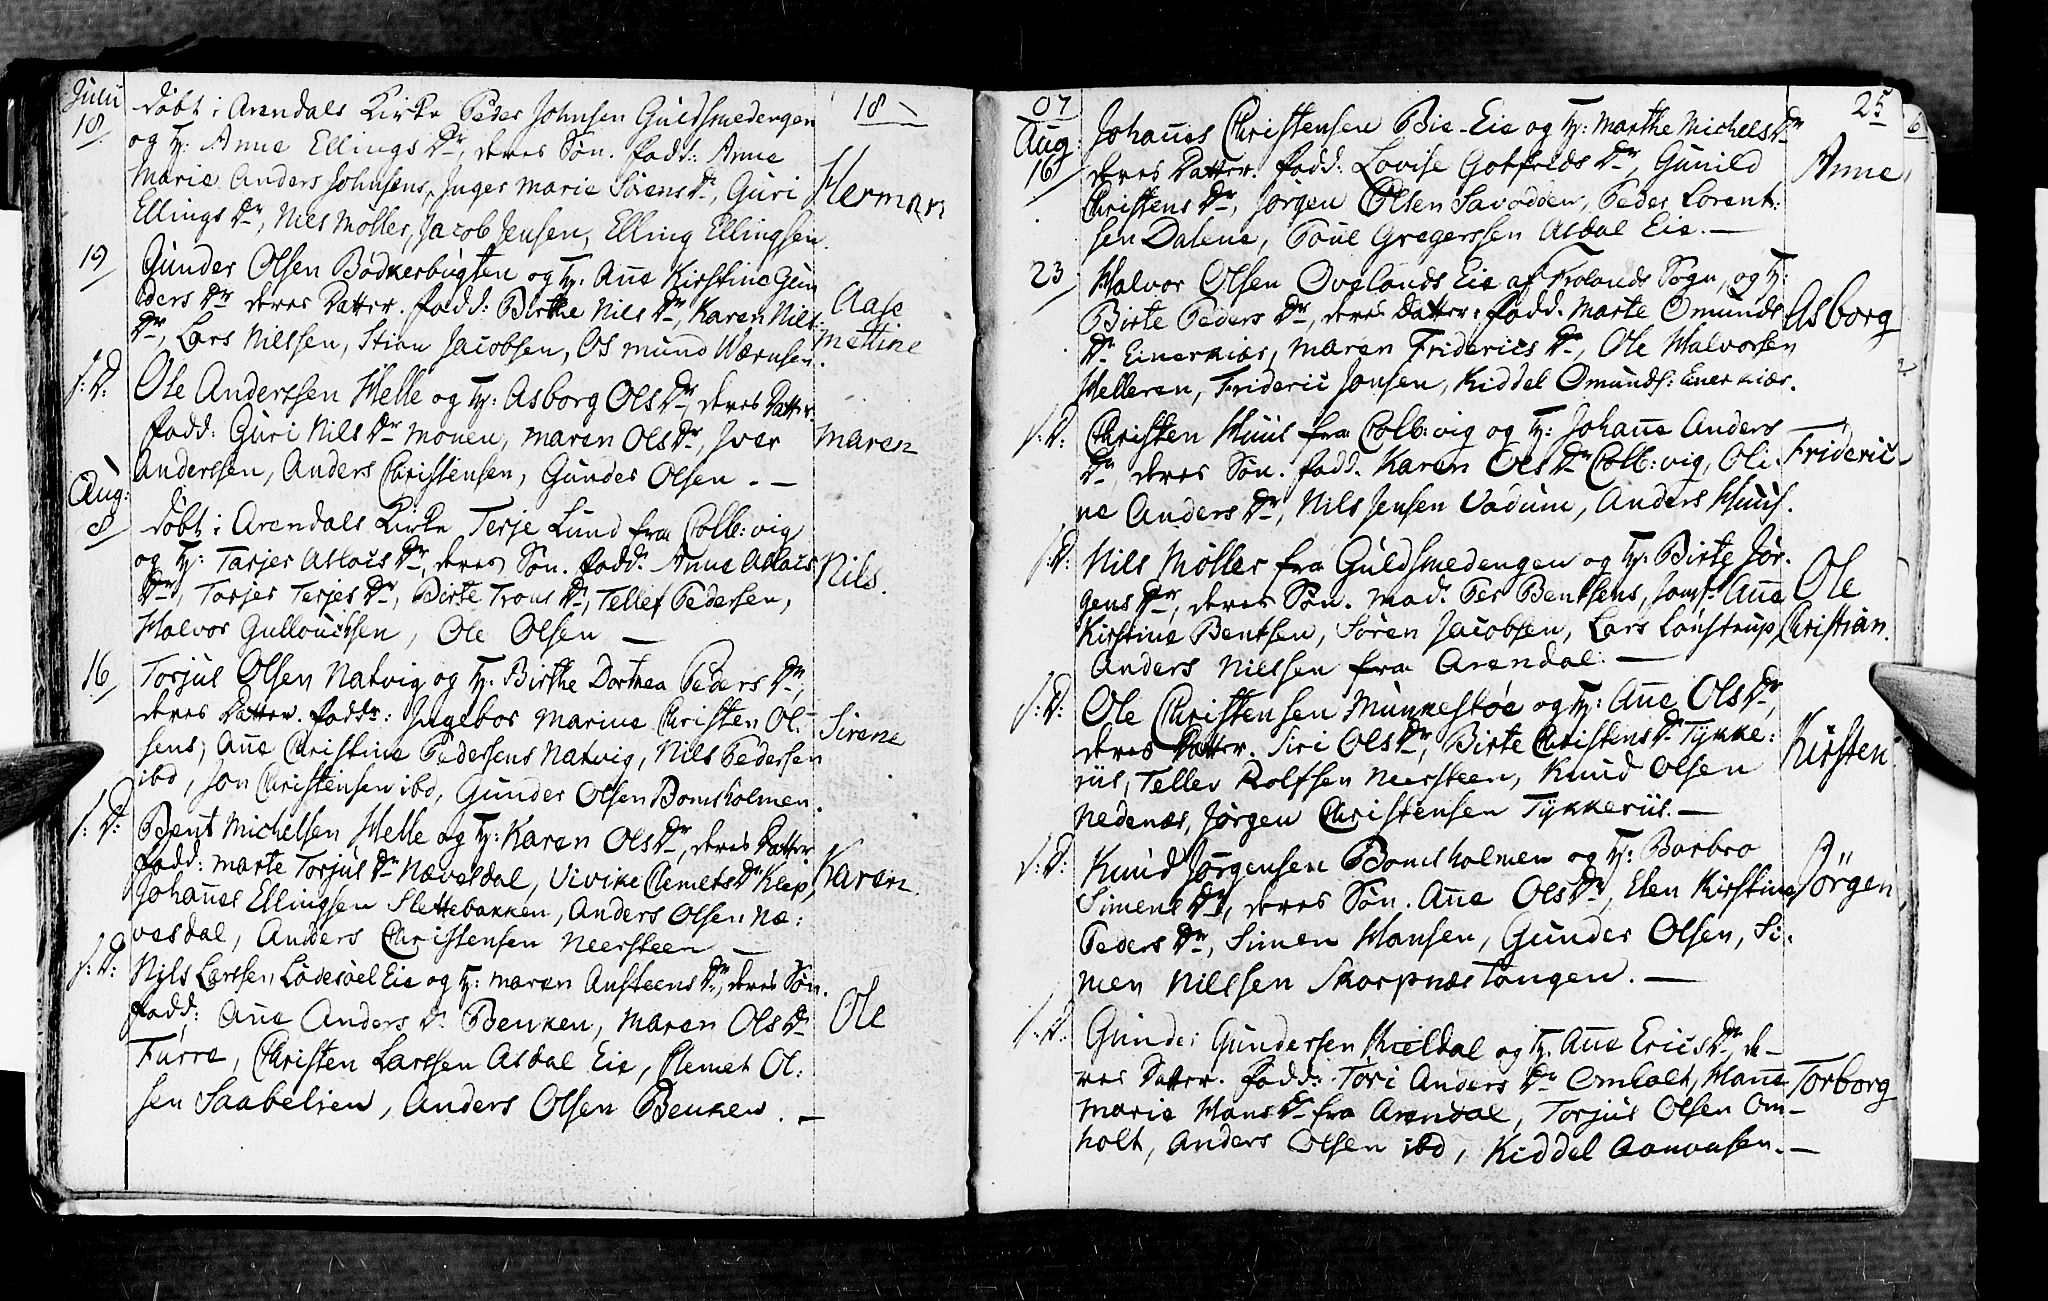 Julii
18
10
døbt i Arendals Kirke Peder Johnsen Guldsmedengen
og H: Anne Ellings Dr, deres Søn. fadd: Anne
Marie Anders Johnsens, Inger Marie Sørens Dr, Guri
Herman
Ellings Dr, Niels Møller, Jacob Jensen, Elling Ellingsen.
19
Gunder Olsen Bødkerbugten og H: Añe Kirstine Gun
ders Dr deres Datter. fadd: Birthe Nils Dr, Karen Nils
Aase
Dr, Lars Nilssen, Stian Jacobsen, Osmund Wærnsen.
Mettine
s: D:
Ole Anderssen Helle og H: Asborg Ols Dr, deres Datter
fadd: Guri Nils Dr Mouen, Maren Ols Dr, Iver
Maren
Anderssen, Anders Christensen, Gunder Olsen. —
Aug:
8
døbt i Arendals Kirke Terje Lund fra Colb:vig
og H: Tarjer Aslois Dr, deres Søn. fadd. Anne Aslois
Nils.
Dr, Torjer Terjes Dr, Birte Trons Dr, Tellef Pedersen,
Halvor Gullouchsen, Ole Olsen —
16
Torjul Olsen Natvig og H: Birthe Dorthea Peders Dr,
deres Datter. faddr: Ingebor Marine Christen Ol:
Sirene
sens, Añe Christine Pedersens Natvig, Nils Pedersen
ibd, Jon Christensen ibd, Gunder Olsen Bomsholmen.
s: D:
Bent Michelsen Helle og H: Karen Ols Dr, deres Datter
fadd: Marte Torjuls Dr Næveldal, Vivike Clemets Dr Klep,
Karen.
Johañes Ellingsen Slettebakken, Anders Olsen Næ:
vesdal, Anders Christensen Neersteen —
s: D:
Nils Larssen Lødesøel Eie og H: Maren Ansteens Dr, deres Søn.
fadd: Añe Anders Dr Beuken, Maren Ols Dr
Ole
Furre, Christen Larssen Asdal Eie, Clemet Ol:
sen Saabelsien, Anders Olsen Beuken. —
07
25
6
Aug:
16
Johañes Christensen Bie-Eie og H: Marthe Michels Dr
deres Datter. fadd: Lovise Gotfrids Dr, Gunild
Anne
Christens Dr, Jørgen Olsen Savodden, Peder Lorent:
sen Dalene, Poul Gregerssen Asdal Eie. —
23
Halvor Olsen Ovelands Eie af Frolands Sogn, og H:
Birte Peders Dr, deres Datter: fadd. Marte Omunds
Asborg
Dr Einerkiær, Maren Friderics Dr, Ole Halvorsen
Helleren, Frideric Jonsen, Kiddel Omunds: Einerkiær.
s: D:
Christen Huus fra Colb:vig og H: Johañe Anders
Dr, deres Søn. fadd. Karen Ols Dr Colb:vig, Oli-
Frideric
ne Anders Dr, Nils Jensen Vadum, Anders Huus.
s: D:
Nils Møller fra Guldsmedengen og H: Birte Jør-
gens Dr, deres Søn. Mad. Per Bentsens, Jomf. Añe
Ole
Kirstine Bentsen, Søren Jacobsen, Lars Lønstrup,
Christian.
Anders Nielssen fra Arendal. —
s: D:
Ole Christensen Munkestøe og H: Añe Ols Dr,
deres Datter. Siri Ols Dr, Birte Christens Dr Tykke:
Kirsten
riis, Tellev Rolfsen Neersteen, Knud Olsen
Nedenæs, Jørgen Christensen Tykkeriis. —
s: D:
Knud Jørgensen Bomsholmen og H: Barbro
Simens Dr, deres Søn. Añe Ols Dr, Elen Kirstine
Jørgen
Peders Dr, Simen Hansen, Gunder Olsen, Si-
men Nilssen Skarpnæs Tangen. —
s: D:
Gunder Gundersen Kieldal og H. Añe Erics Dr de-
res Datter. fadd: Tori Anders Dr Omholt, Hañe
Torborg
Marie Hans Dr fra Arendal, Torjus Olsen Om-
holt, Anders Olsen ibd, Kiddel Aanonsen. —